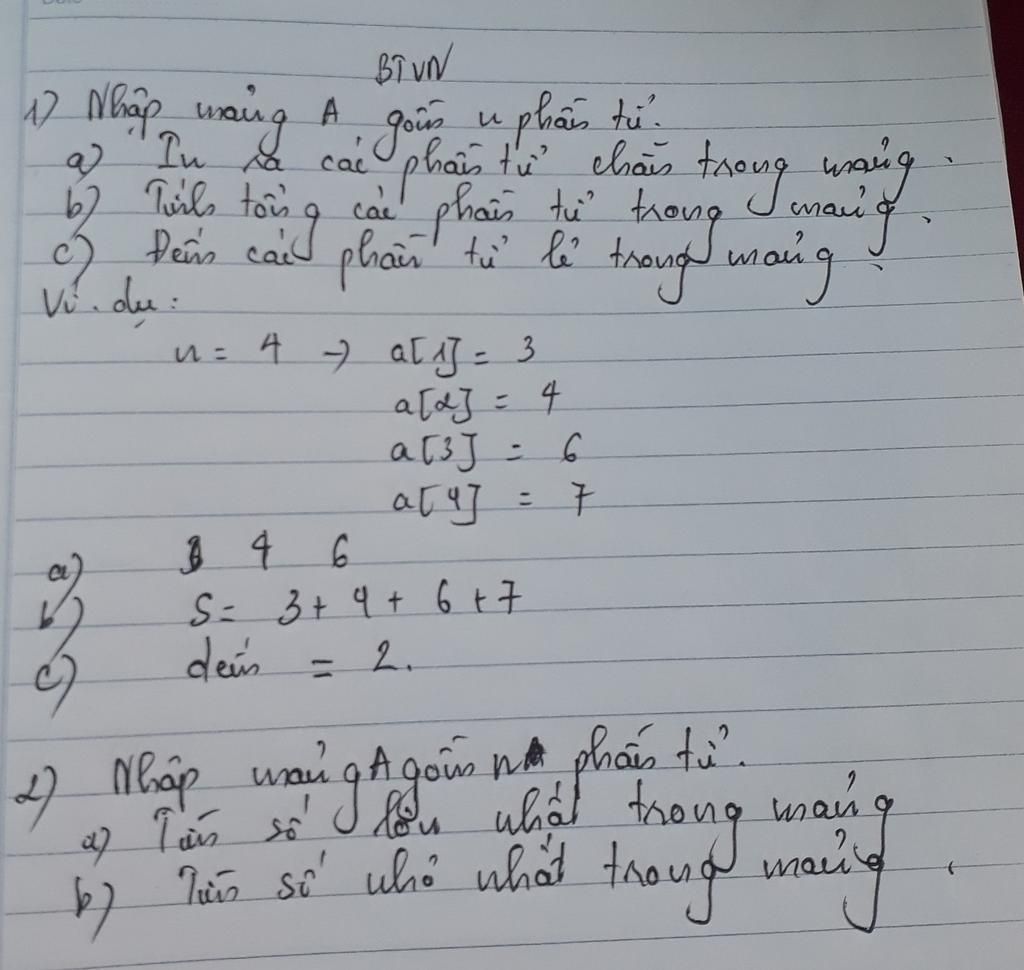 BTVN
1) Nhập mảng A gồm n phần tử.
a) In ra các phần tử chẵn trong mảng.
b) Tính tổng các phần tử trong mảng.
c) Đếm các phần tử lẻ trong mảng.
Ví dụ:
n = 4 → a[1] = 3
a[2] = 4
a[3] = 6
a[4] = 7
a) 4 6
b) S = 3 + 4 + 6 + 7
c) đếm = 2.
2) Nhập mảng A gồm n phần tử.
a) Tìm số lớn nhất trong mảng
b) Tìm số nhỏ nhất trong mảng.